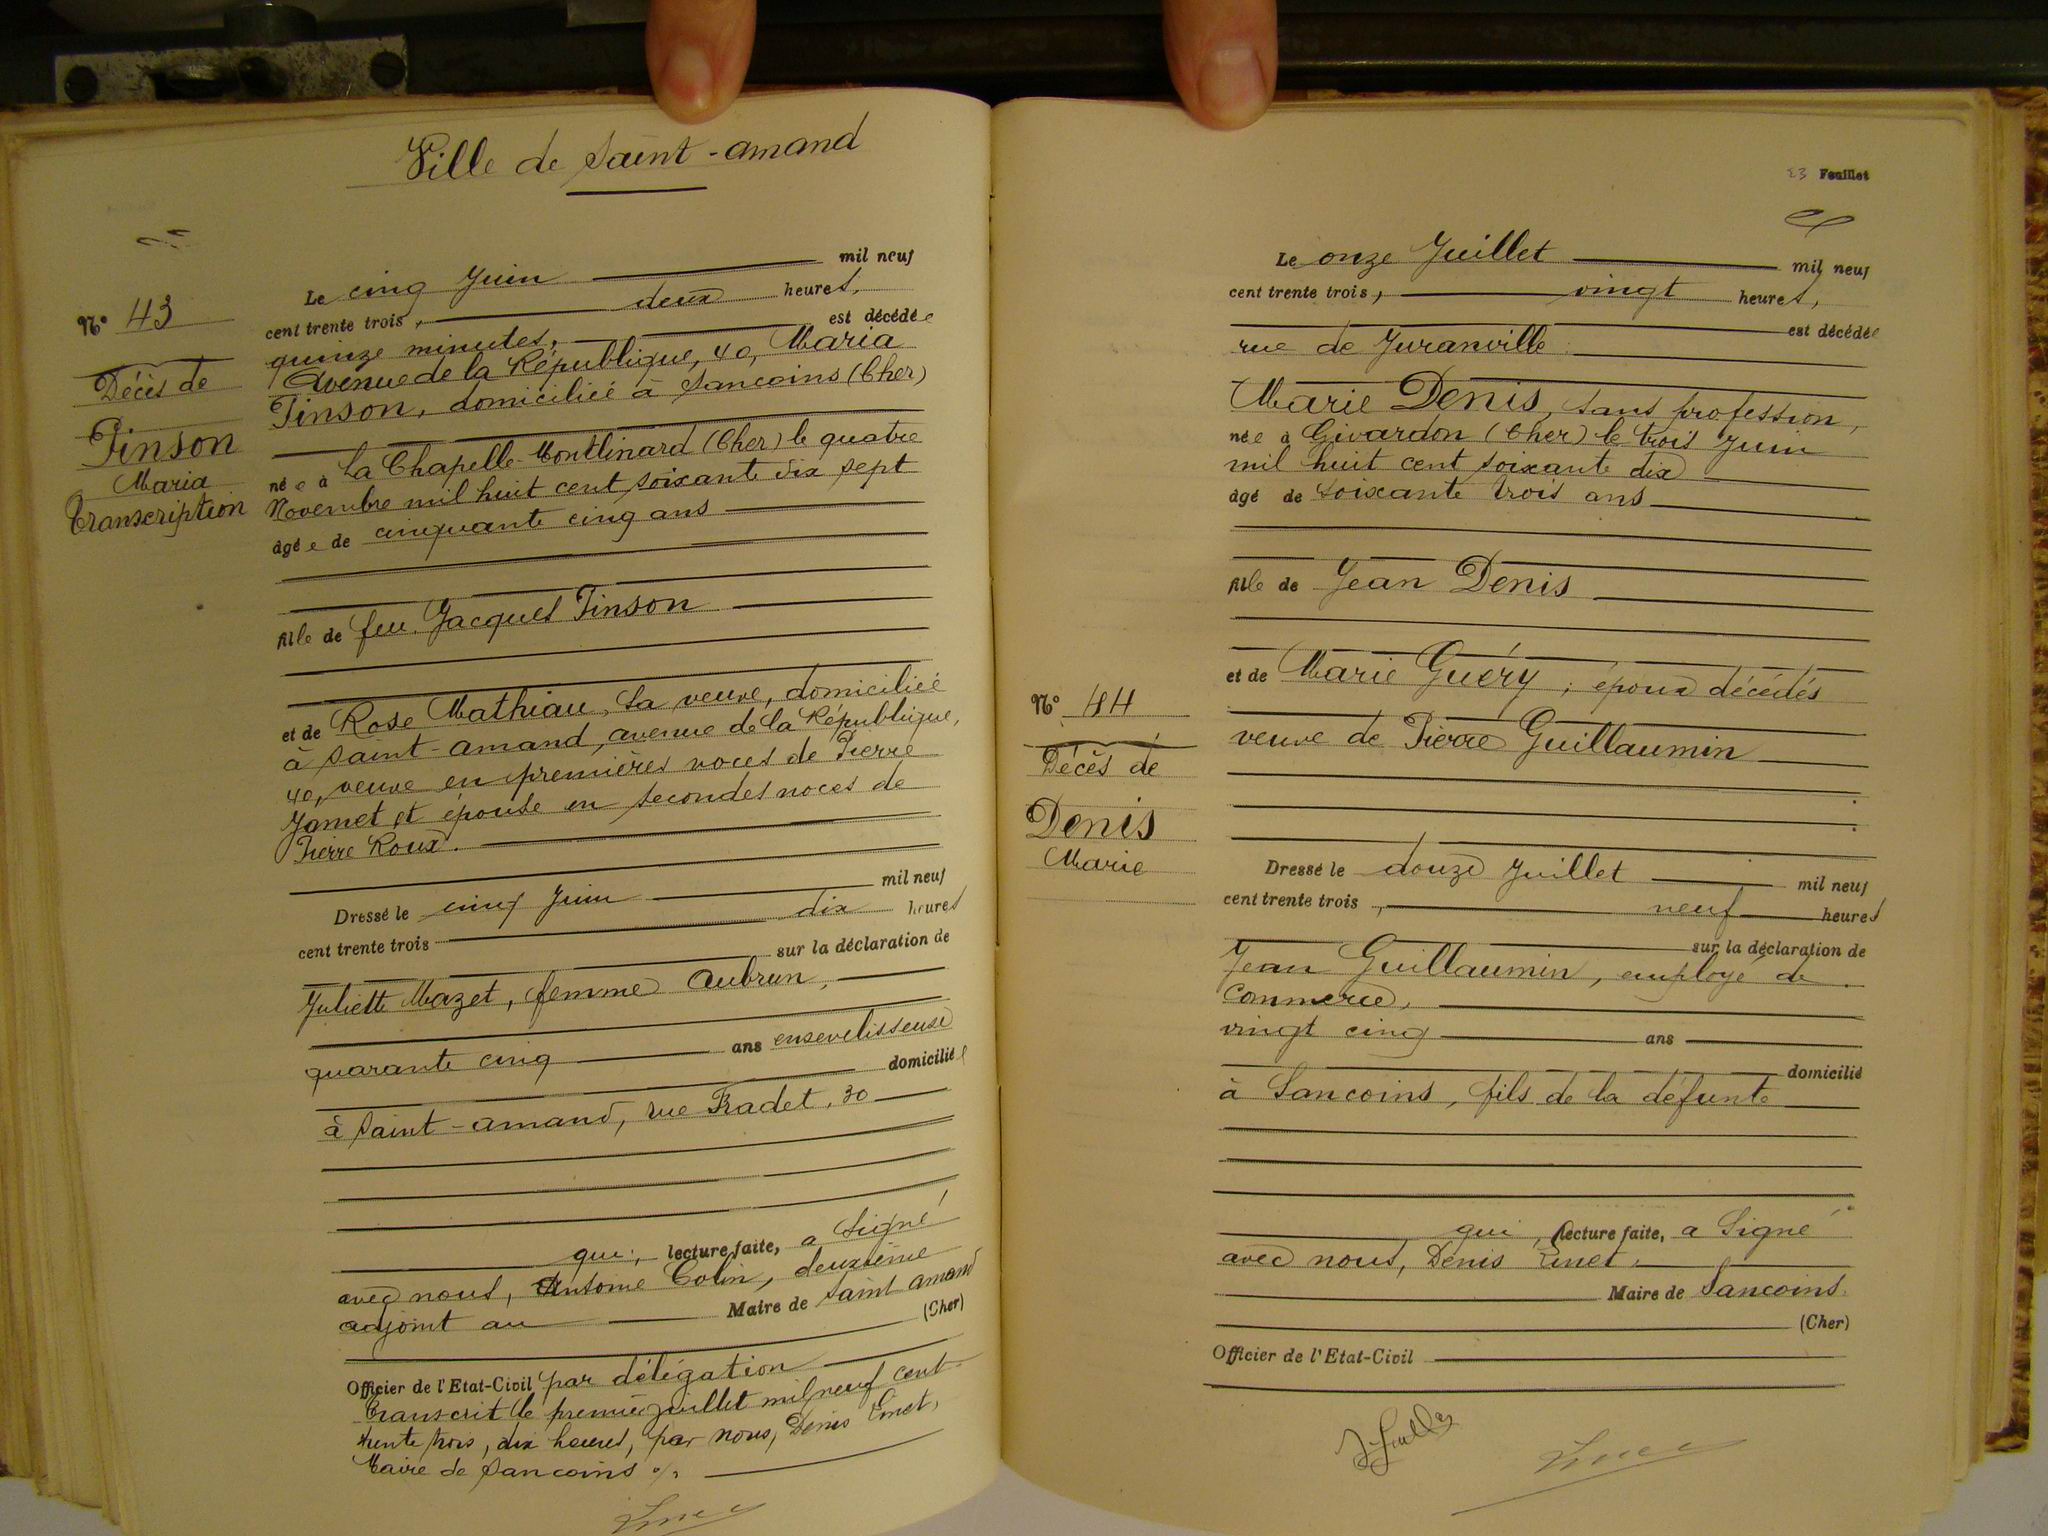 Ville de Saint-Amand
N° 43
Décès de
Pinson
Maria
Transcription
Le cinq Juin mil neuf
cent trente trois, deux heures,
quinze minutes, est décédée
Avenue de la République, 40, Maria
Pinson, domiciliée à Sancoins (Cher)
née à La Chapelle-Montlinard (Cher) le quatre
Novembre mil huit cent soixante dix sept
âgée de cinquante cinq ans
fille de feu Jacques Pinson
et de Rose Mathiau, sa veuve, domiciliée
à Saint-Amand, avenue de la République,
40, veuve en premières noces de Pierre
Jamet et épouse en secondes noces de
Pierre Roux.
Dressé le cinq Juin mil neuf
cent trente trois dix heures
sur la déclaration de
Juliette Mazet, femme Aubrun,
quarante cinq ans ensevelisseuse
domiciliée
à Saint-Amand, rue Fradet, 30
qui, lecture faite, a signé
avec nous, Antoine Colin, deuxième
adjoint au Maire de Saint Amand
(Cher)
Officier de l'Etat-Civil par délégation
Transcrit le premier juillet mil neuf cent
trente trois, dix heures, par nous, Denis Emet,
Maire de Sancoins ./.
23 Feuillet
Le onze Juillet mil neuf
cent trente trois, vingt heures,
est décédée
rue de Juranville
Marie Denis, sans profession,
née à Givardon (Cher) le trois Juin
mil huit cent soixante dix
âgé de soixante trois ans
fille de Jean Denis
et de Marie Guéry ; époux décédés
veuve de Pierre Guillaumin
N° 44
Décès de
Denis
Marie
Dressé le douze Juillet mil neuf
cent trente trois, neuf heures
sur la déclaration de
Jean Guillaumin, employé de
commerce,
vingt cinq ans
domicilié
à Sancoins, fils de la défunte
qui, lecture faite, a signé
avec nous, Denis Emet,
Maire de Sancoins
(Cher)
Officier de l'Etat-Civil